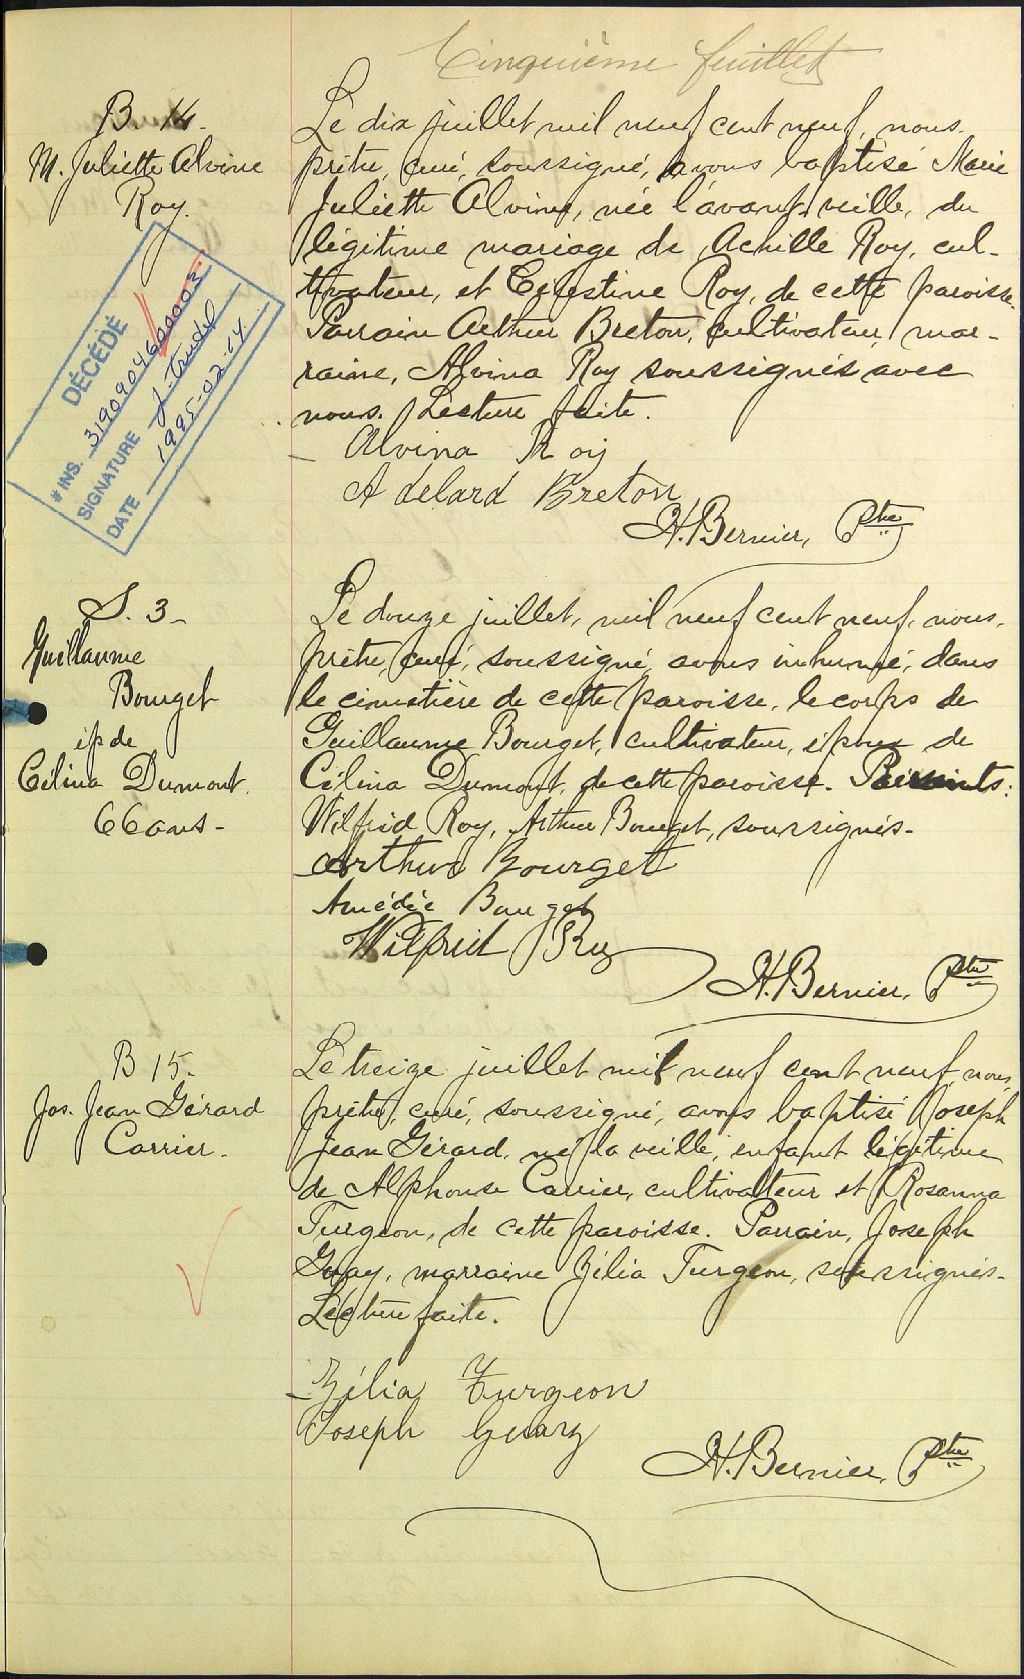 Cinquième feuillet
B. 14.
M. Juliette Alvine
Roy.
Le dix juillet mil neuf cent neuf, nous
prêtre, curé, soussigné, avons baptisé Marie
Juliette Alvine, née l'avant veille, du
légitime mariage de Achille Roy, cul-
tivateur, et Célestine Roy, de cette paroisse.
Parrain Arthur Breton, cultivateur, mar-
raine, Alvina Roy soussignés avec
nous. Lecture faite.
Alvina Roy
Adelard Breton
H. Bernier, Ptre
DÉCÉDÉ
# INS. 3190904600003
SIGNATURE J. Trudel
DATE 1995-02-14
S. 3-
Guillaume
Bourget
ép de
Célina Dumont.
66 ans-
Le douze juillet, mil neuf cent neuf, nous,
prêtre, curé, soussigné, avons inhumé, dans
le cimetière de cette paroisse, le corps de
Guillaume Bourget, cultivateur, époux de
Célina Dumont, de cette paroisse.
Wilfrid Roy, Arthur Bourget, soussignés-
Arthur Bourget
Amédée Bourget
Wilfrid Roy
H. Bernier, Ptre
B 15.
Jos. Jean Gérard
Carrier.
Le treize juillet mil neuf cent neuf, nous,
prêtre, curé, soussigné, avons baptisé Joseph
Jean Gérard, né la veille, enfant légitime
de Alphonse Carrier, cultivateur et Rosanna
Turgeon, de cette paroisse. Parrain, Joseph
Guay, marraine Zélia Turgeon, soussignés-
Lecture faite.
Zélia Turgeon
Joseph Guay
H. Bernier, Ptre